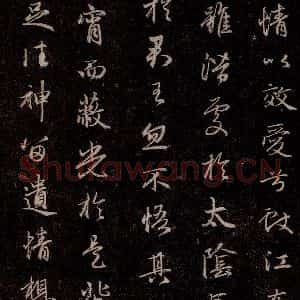 情以效愛兮獻江
雖潛處於太陰
於君王忽不悟其
宵而蔽光於是背
足往神留遺情想
Shufawang.CN